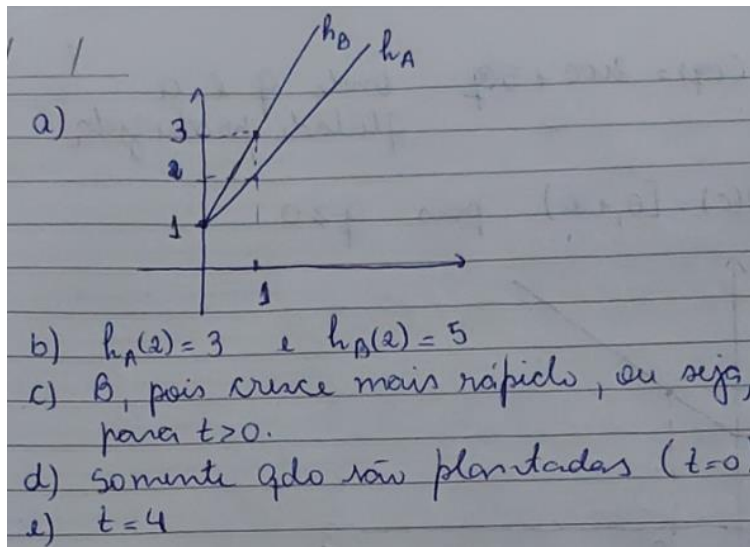 a)
h_B
h_A
3
2
1
1
b) h_A(2) = 3 e h_B(2) = 5
c) B, pois cresce mais rápido, ou seja,
para t>0.
d) somente qdo são plantadas (t=0
e) t = 4